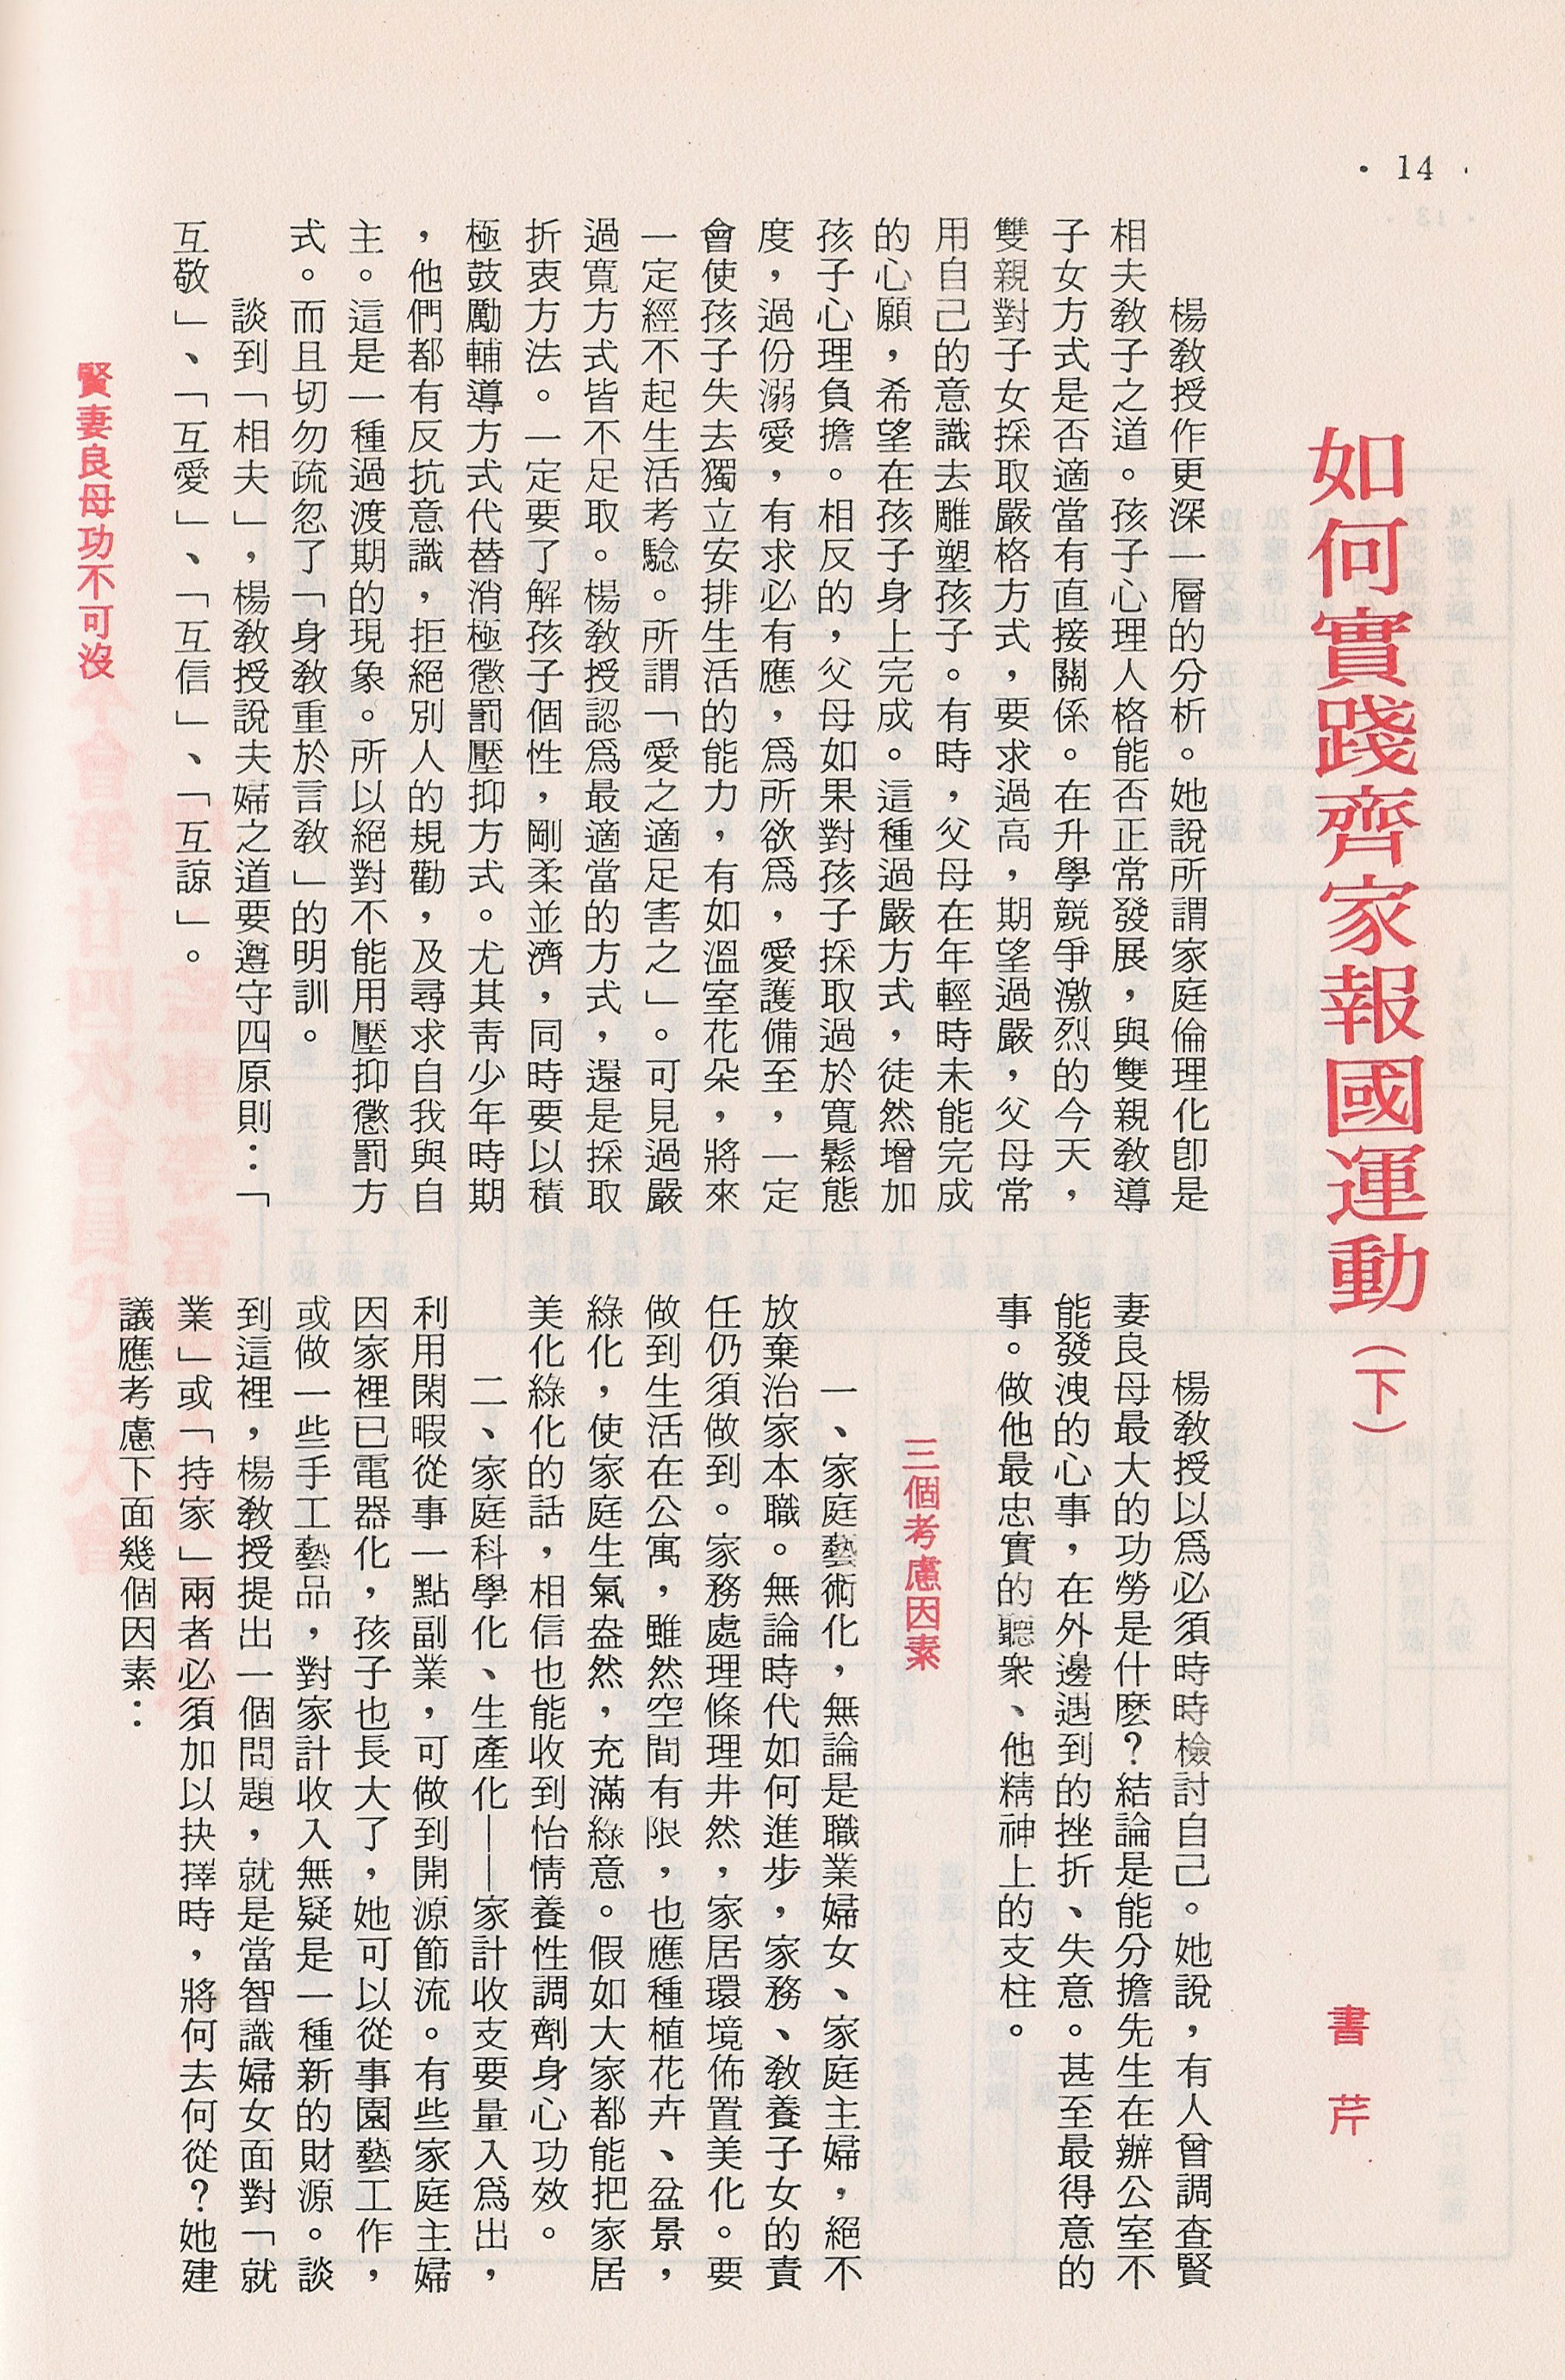 · 14 ·
如何實踐齊家報國運動（下）
書芹
楊教授作更深一層的分析。她說所謂家庭倫理化卽是
相夫教子之道。孩子心理人格能否正常發展，與雙親教導
子女方式是否適當有直接關係。在升學競爭激烈的今天，
雙親對子女採取嚴格方式，要求過高，期望過嚴，父母常
用自己的意識去雕塑孩子。有時，父母在年輕時未能完成
的心願，希望在孩子身上完成。這種過嚴方式，徒然增加
孩子心理負擔。相反的，父母如果對孩子採取過於寬鬆態
度，過份溺愛，有求必有應，爲所欲爲，愛護備至，一定
會使孩子失去獨立安排生活的能力，有如溫室花朵，將來
一定經不起生活考驗。所謂「愛之適足害之」。可見過嚴
過寬方式皆不足取。楊教授認爲最適當的方式，還是採取
折衷方法。一定要了解孩子個性，剛柔並濟，同時要以積
極鼓勵輔導方式代替消極懲罰壓抑方式。尤其靑少年時期
，他們都有反抗意識，拒絕別人的規勸，及尋求自我與自
主。這是一種過渡期的現象。所以絕對不能用壓抑懲罰方
式。而且切勿疏忽了「身教重於言教」的明訓。
談到「相夫」，楊教授說夫婦之道要遵守四原則：「
互敬」、「互愛」、「互信」、「互諒」。
賢妻良母功不可沒
楊教授以爲必須時時檢討自己。她說，有人曾調查賢
妻良母最大的功勞是什麽？結論是能分擔先生在辦公室不
能發洩的心事，在外邊遇到的挫折、失意。甚至最得意的
事。做他最忠實的聽衆、他精神上的支柱。
三個考慮因素
一、家庭藝術化，無論是職業婦女、家庭主婦，絕不
放棄治家本職。無論時代如何進步，家務、教養子女的責
任仍須做到。家務處理條理井然，家居環境佈置美化。要
做到生活在公寓，雖然空間有限，也應種植花卉、盆景，
綠化，使家庭生氣盎然，充滿綠意。假如大家都能把家居
美化綠化的話，相信也能收到怡情養性調劑身心功效。
二、家庭科學化、生產化——家計收支要量入爲出，
利用閑暇從事一點副業，可做到開源節流。有些家庭主婦
因家裡已電器化，孩子也長大了，她可以從事園藝工作，
或做一些手工藝品，對家計收入無疑是一種新的財源。談
到這裡，楊教授提出一個問題，就是當智識婦女面對「就
業」或「持家」兩者必須加以抉擇時，將何去何從？她建
議應考慮下面幾個因素：